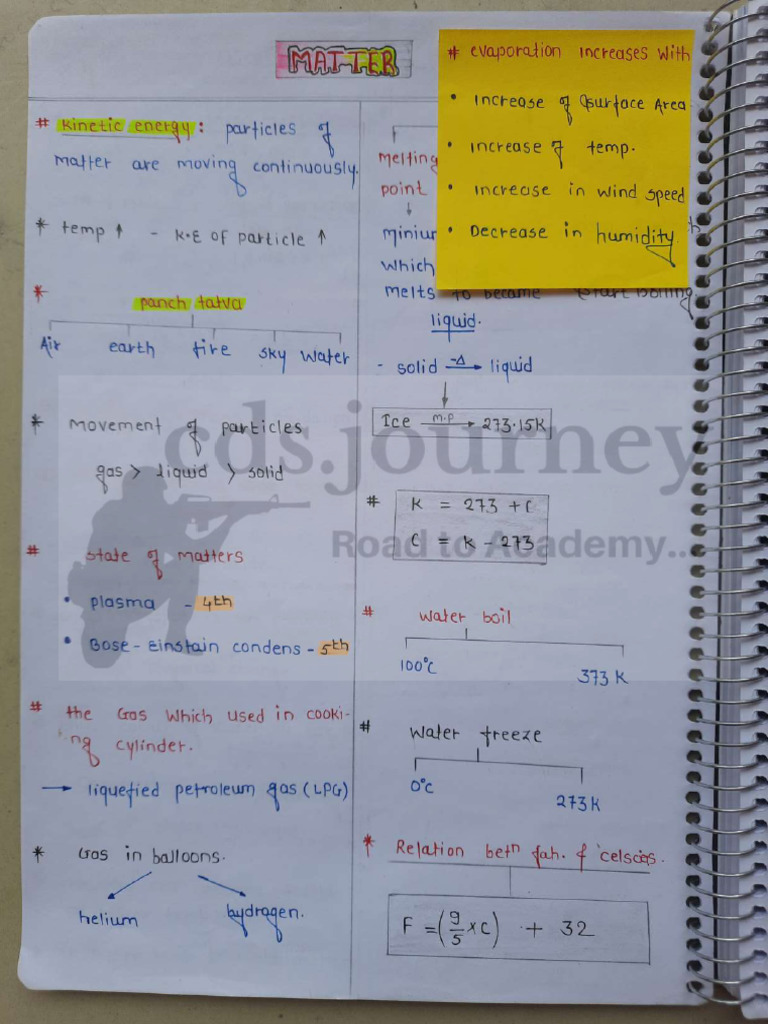 MATTER
# Kinetic energy : particles of
matter are moving continuously.
* temp ↑ - K.E of particle ↑
*
panch tatva
Air earth fire sky water
* movement of particles
gas > liquid > solid
# state of matters
• plasma - 4th
• Bose - Einstain condens - 5th
# the Gas which used in cooki-
ng cylinder.
→ liquefied petroleum gas (LPG)
* Gas in balloons.
helium hydrogen.
# evaporation increases with
• Increase of surface Area.
• increase of temp.
• increase in wind speed
• Decrease in humidity.
melting
point
↓
which
melts to became start boiling
liquid.
- solid -Δ→ liquid
↓
Ice m.p → 273.15K
# K = 273 + C
C = K - 273
# water boil
100°C 373 K
# water freeze
0°C 273 K
* Relation betn fah. & celscies.
F = (9/5 × C) + 32
cds.journey
Road to Academy...